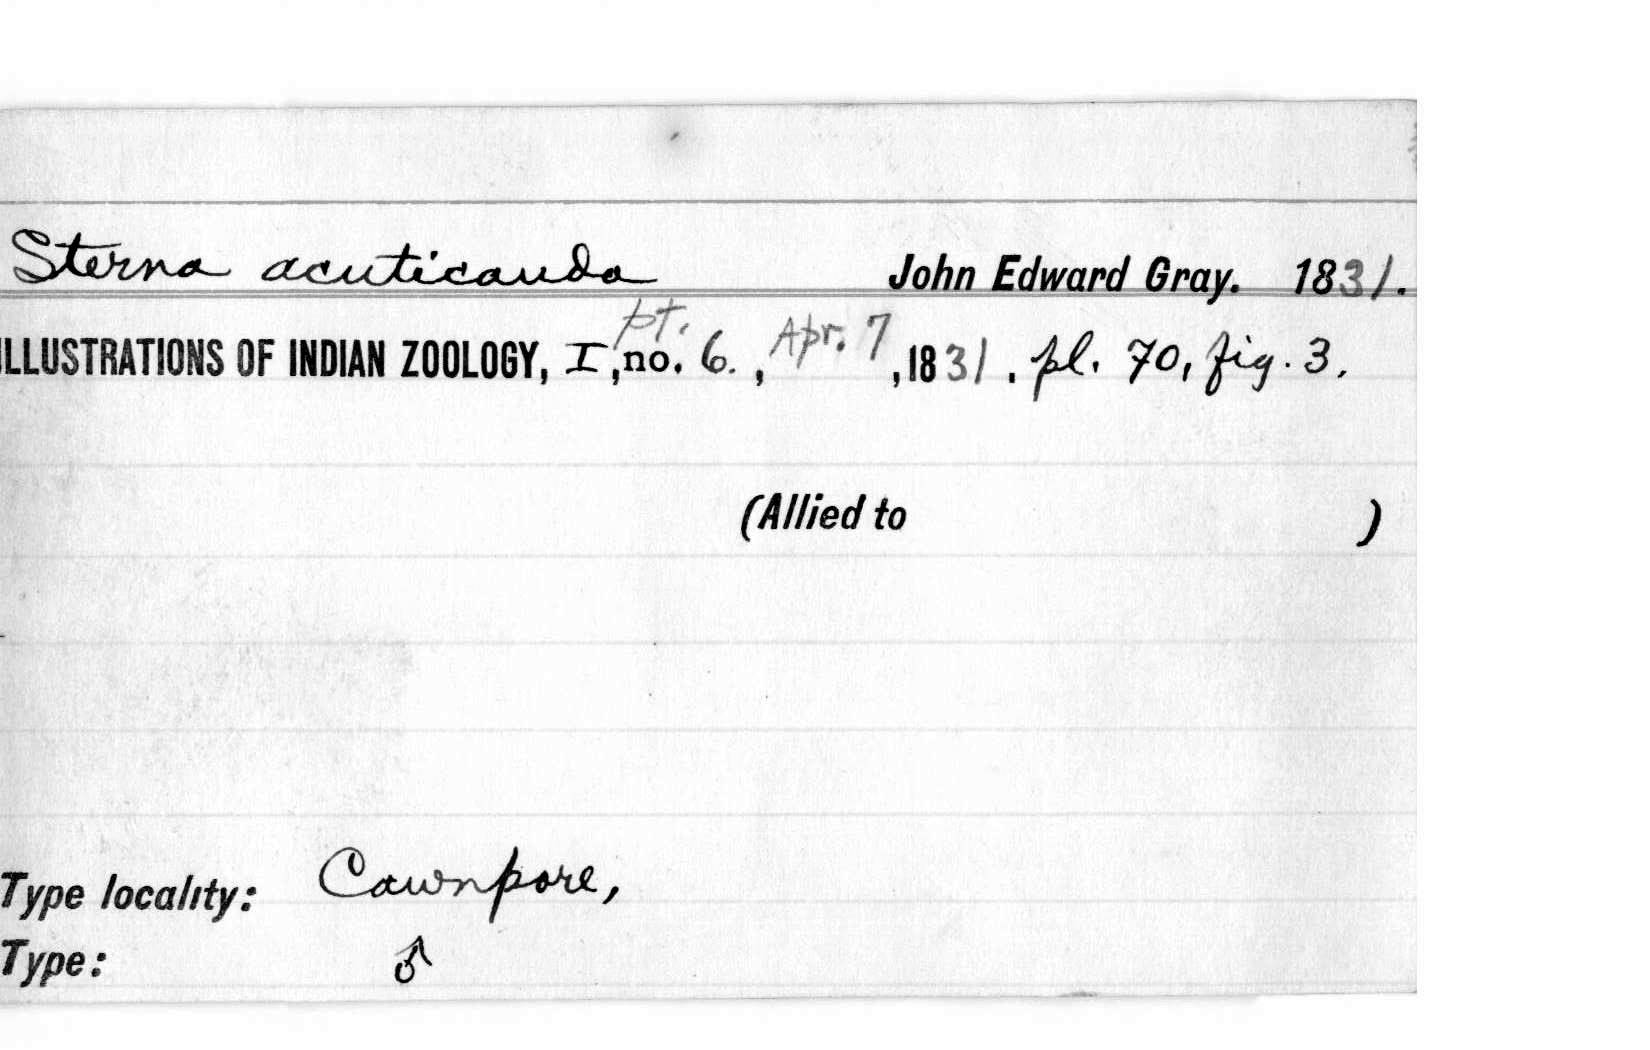 Sterna acuticauda John Edward Gray. 1831.
pt. Apr. 7
ILLUSTRATIONS OF INDIAN ZOOLOGY, I, no. 6. , ,1831 . pl. 70, fig. 3.
(Allied to )
Type locality: Cawnpore,
Type: ♂